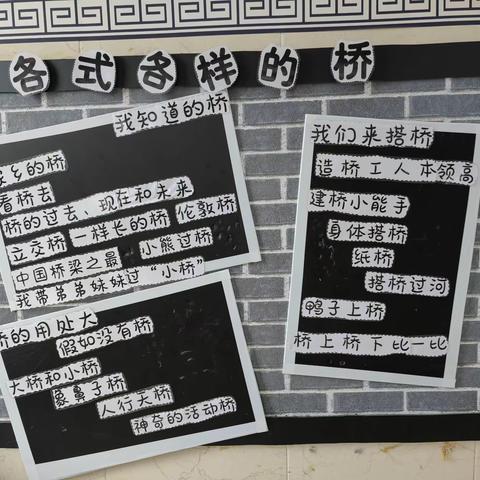 各式各样的桥
我知道的桥
乡的桥
看桥去
桥的过去、现在和未来
立交桥 一样长的桥 伦敦桥
中国桥梁之最 小熊过桥
我带弟弟妹妹过“小桥”
桥的用处大
假如没有桥
大桥和小桥
象鼻子桥
人行天桥
神奇的活动桥
我们来搭桥
造桥工人本领高
建桥小能手
身体搭桥
纸桥
搭桥过河
鸭子上桥
桥上桥下比一比